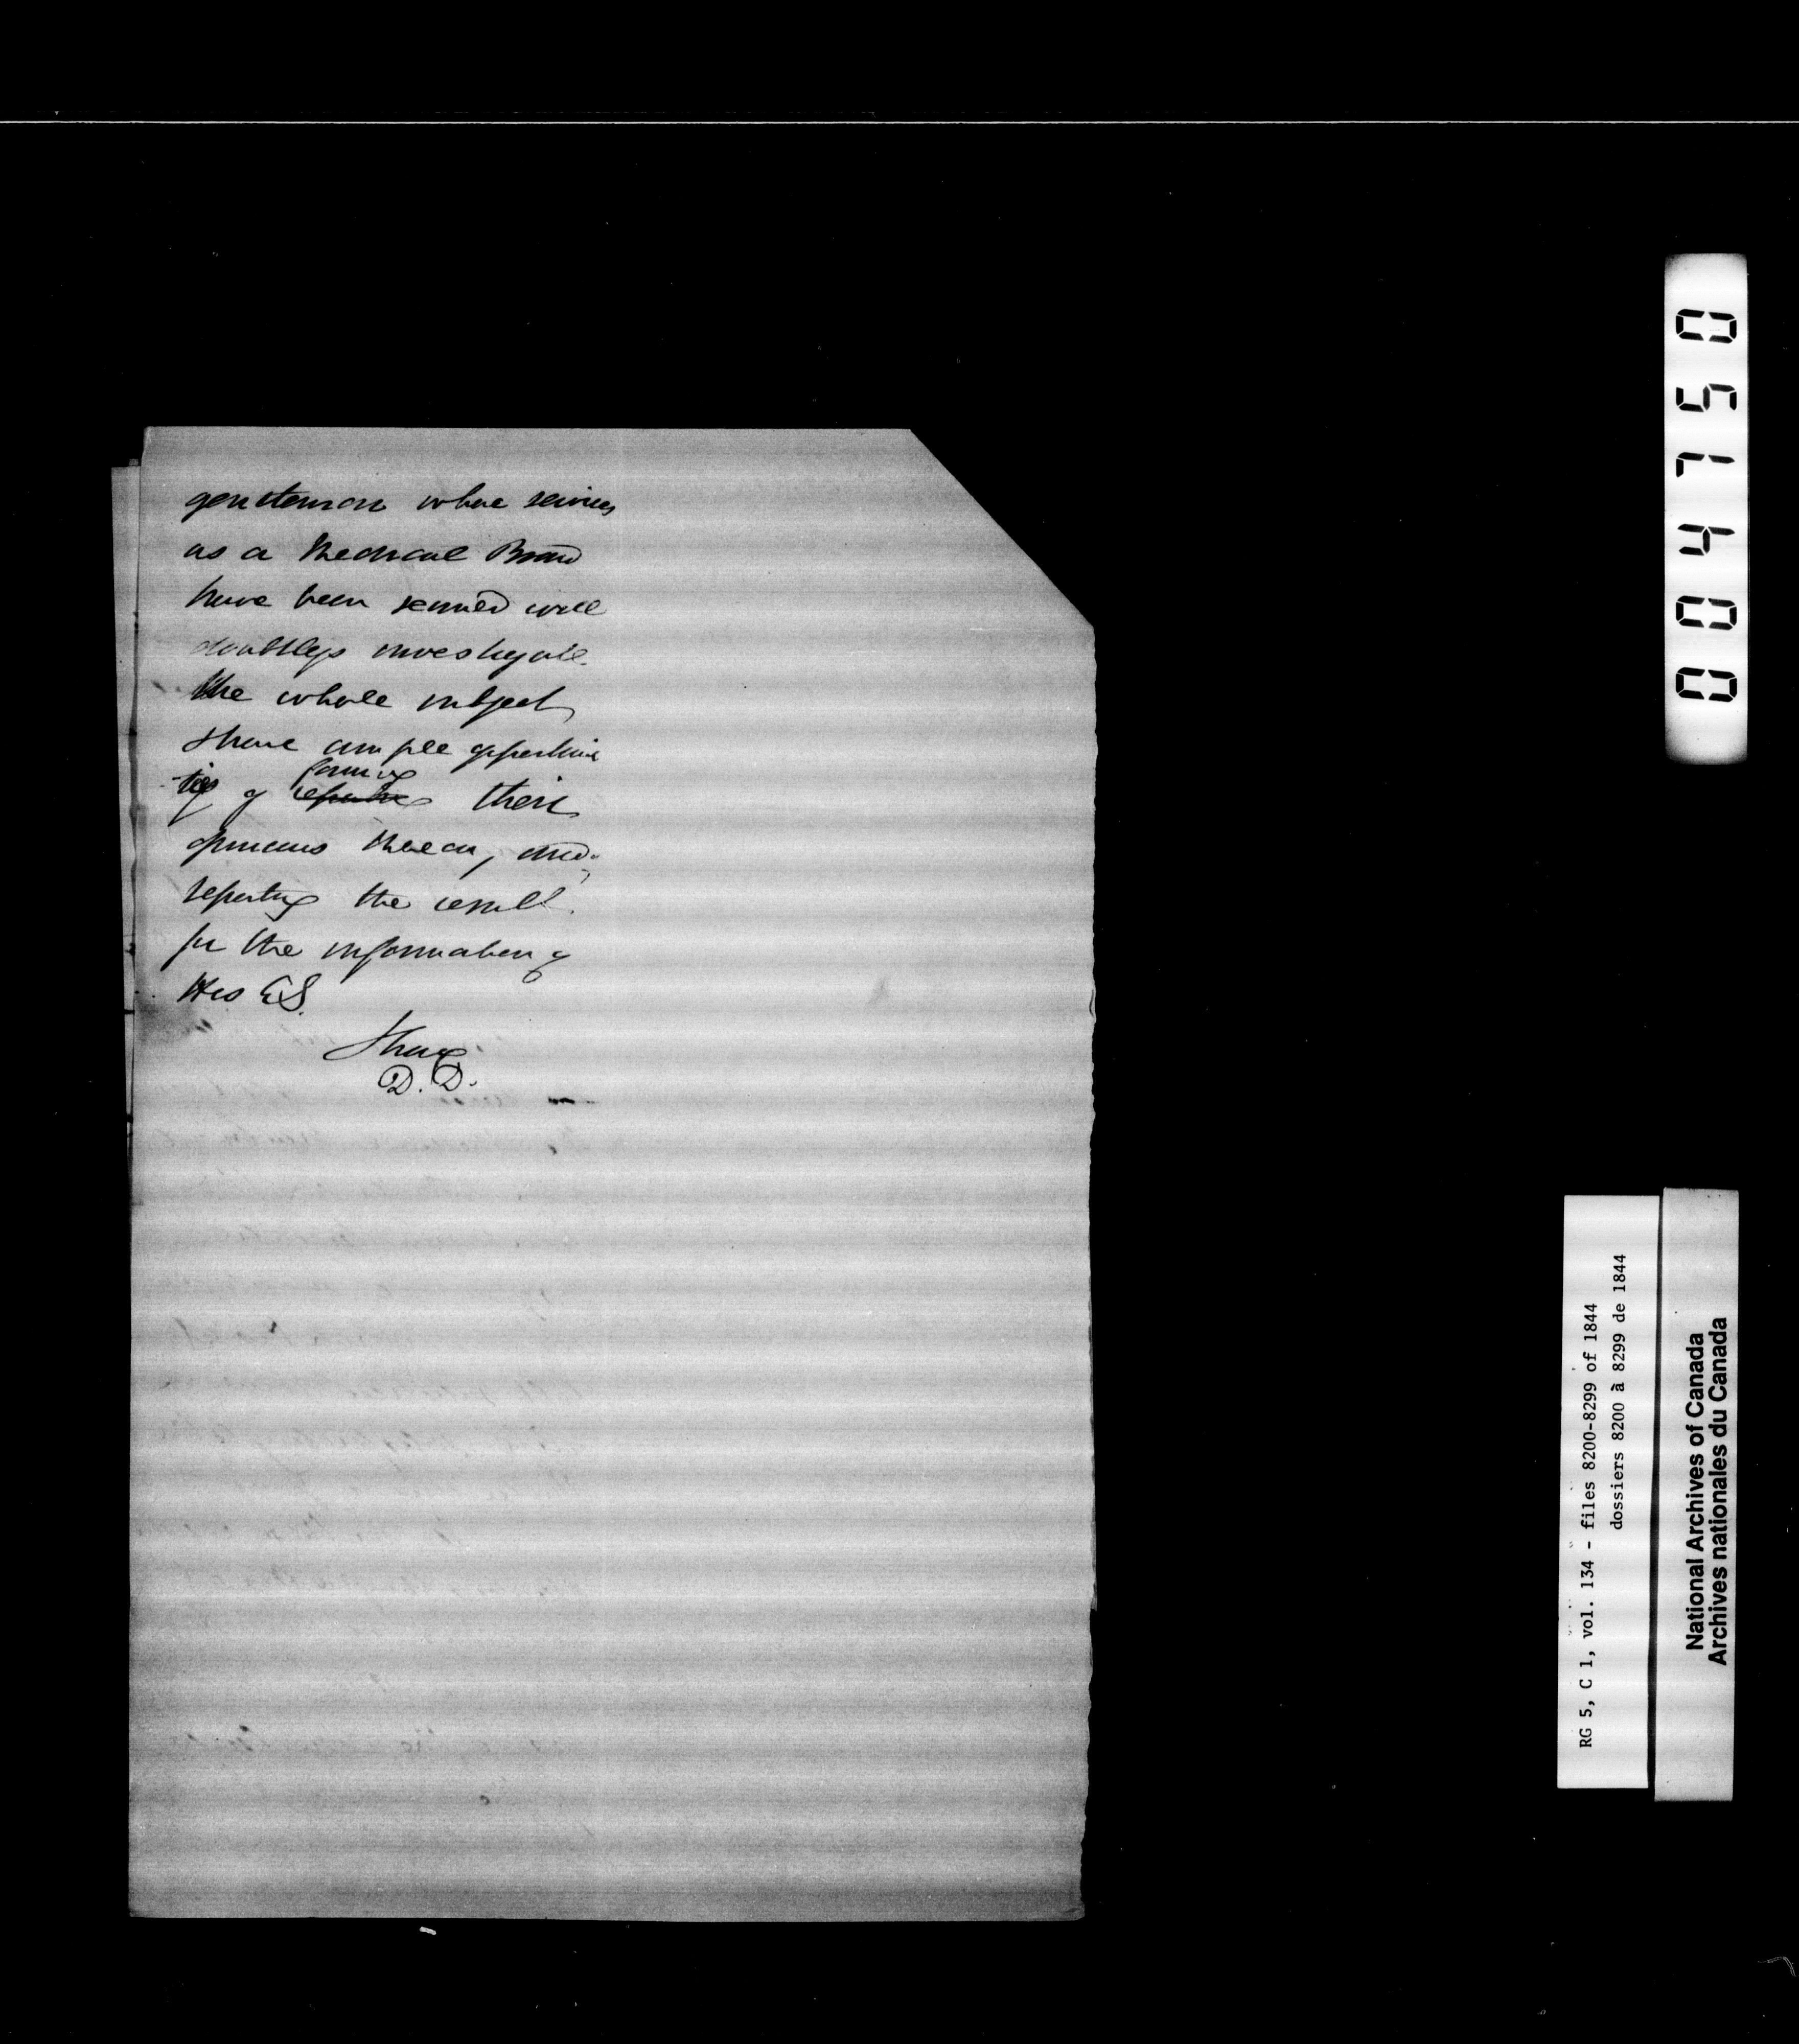 gentlemen whose services
as a Medical Board
have been secured will
doubtless investigate
the whole subject
& have ample opportuni
ties of forming
reporting their
opinions thereon, and
reporting the result
for the information of
His E.
I have
D. D.
004750
RG 5, C 1, vol. 134 - files 8200-8299 of 1844
dossiers 8200 à 8299 de 1844
National Archives of Canada
Archives nationales du Canada